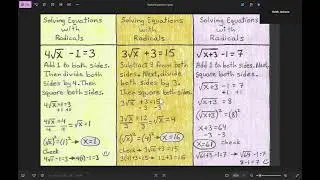 Solving Equations
with
Radicals
4√x - 1 = 3
Add 1 to both sides.
Then divide
both sides by
4. Then
square both sides.
4√x - 1 = 3
+1 +1
4√x = 4
4 4
√x = 1
(√x)² = (1)² → x = 1
Check
Solving Equations
with
Radicals
3√x + 3 = 15
Subtract 3 from both
sides. Next, divide
both sides by 3.
Then square both
sides.
3√x + 3 = 15
3√x = 12
3 3
√x = 4
(√x)² = (4)² → x = 16
Check → 3√x + 3 = 15
Solving Equations
with
Radicals
√x+3 - 1 = 7
Add 1 to both
sides. Next,
square both sides.
√x+3 - 1 = 7
+1 +1
√x+3 = 8
(√x+3)² = (8)²
x + 3 = 64
-3 -3
x = 61
Check